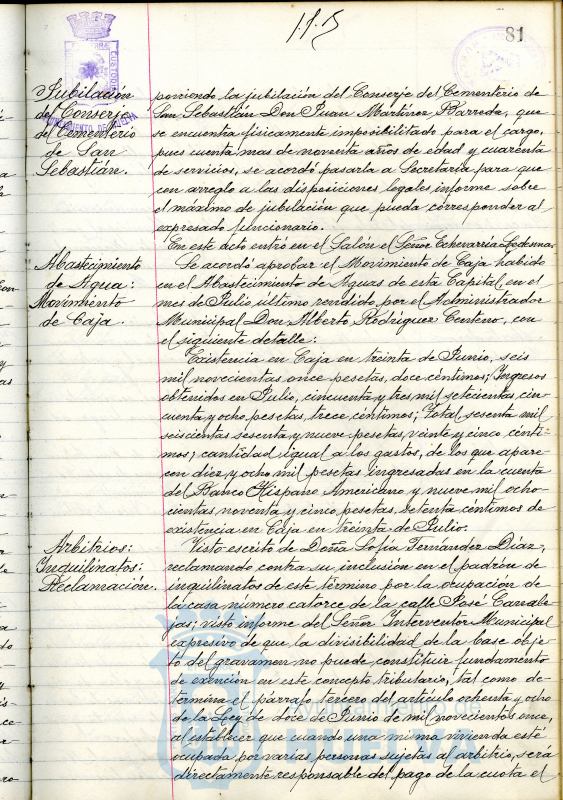 81
Jubilación
del Conserje
del Cementerio
de San
Sebastián.
poniendo la jubilación del Conserje del Cementerio de
San Sebastián Don Juan Martínez Barreda, que
se encuentra físicamente imposibilitado para el cargo,
pues cuenta mas de noventa años de edad y cuarenta
de servicios, se acordó pasarla a Secretaría para que
con arreglo a las disposiciones legales, informe sobre
el máximo de jubilación que pueda corresponder al
expresado funcionario.
En este acto entró en el Salón el Señor Echevarría
Abastecimiento
de Agua:
Movimiento
de Caja.
Se acordó aprobar el Movimiento de Caja habido
en el Abastecimiento de Aguas de esta Capital, en el
mes de Julio último rendido, por el Administrador
Municipal Don Alberto Rodríguez Centeno, con
el siguiente detalle:
Existencia en Caja en treinta de Junio, seis
mil novecientas once pesetas, doce céntimos; Ingresos
obtenidos en Julio, cincuenta y tres mil setecientas cin-
cuenta y ocho pesetas, trece céntimos; Total, sesenta mil
seiscientas sesenta y nueve pesetas, veinte y cinco cénti-
mos; cantidad igual a los gastos, de los que apare-
cen diez y ocho mil pesetas ingresadas en la cuenta
del Banco Hispano Americano y nueve mil ocho-
cientas noventa y cinco pesetas, setenta céntimos de
existencia en Caja en treinta de Julio.
Arbitrios:
Inquilinatos:
Reclamación.
Visto escrito de Doña Sofía Fernandez Díaz,
reclamando contra su inclusión en el padrón de
inquilinatos de este término por la ocupación de
la casa numero catorce de la calle José Canale-
jas; visto informe del Señor Interventor Municipal
expresivo de que la divisibilidad de la base obje-
to del gravamen no puede constituir fundamento
de exención en este concepto tributario, tal como de-
termina el párrafo tercero del artículo ochenta y ocho
de la Ley de doce de Junio de mil novecientos once,
al establecer que cuando una misma vivienda esté
ocupada por varias personas sujetas al arbitrio, será
directamente responsable del pago de la cuota el